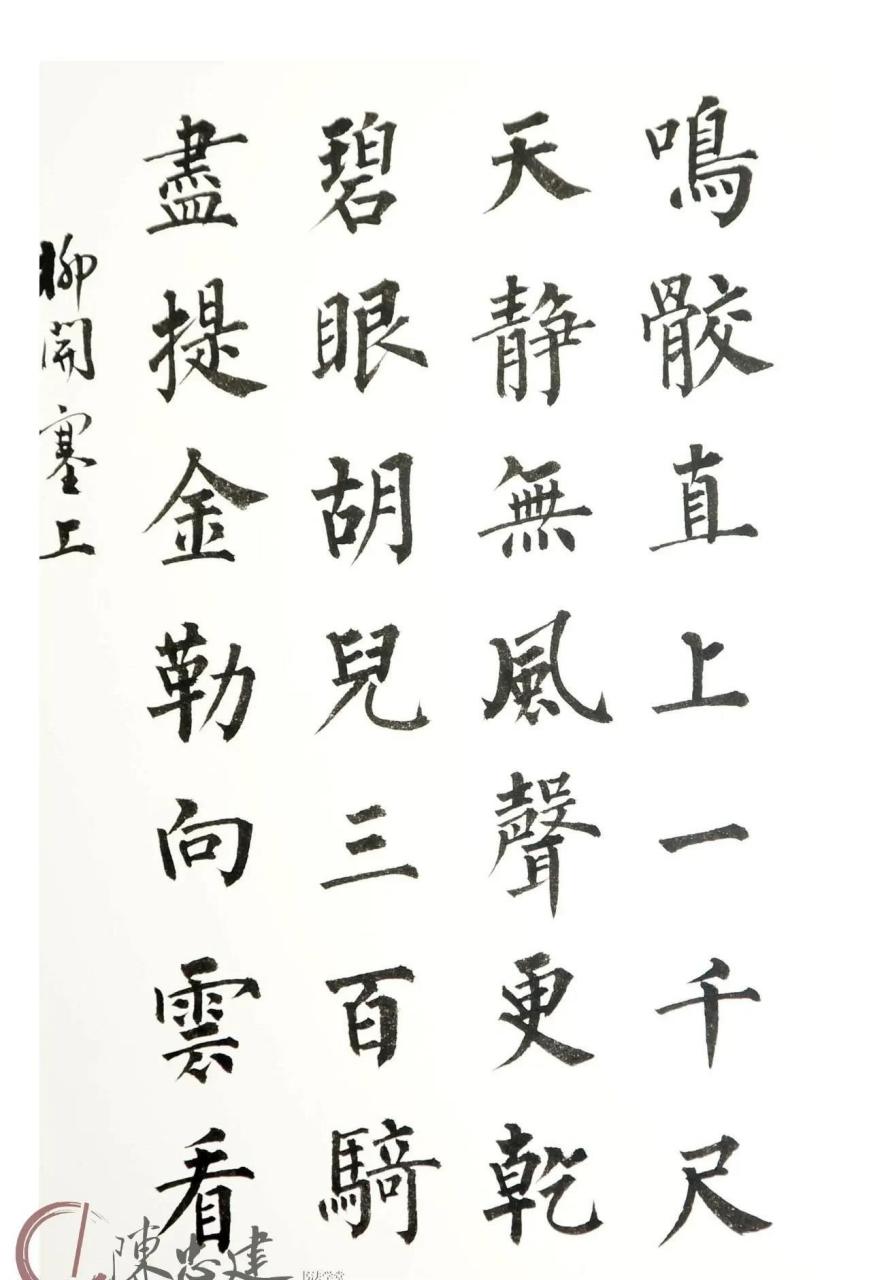 鳴骹直上一千尺
天靜無風聲更乾
碧眼胡兒三百騎
盡提金勒向雲看
柳開塞上
陳忠建
书法学堂